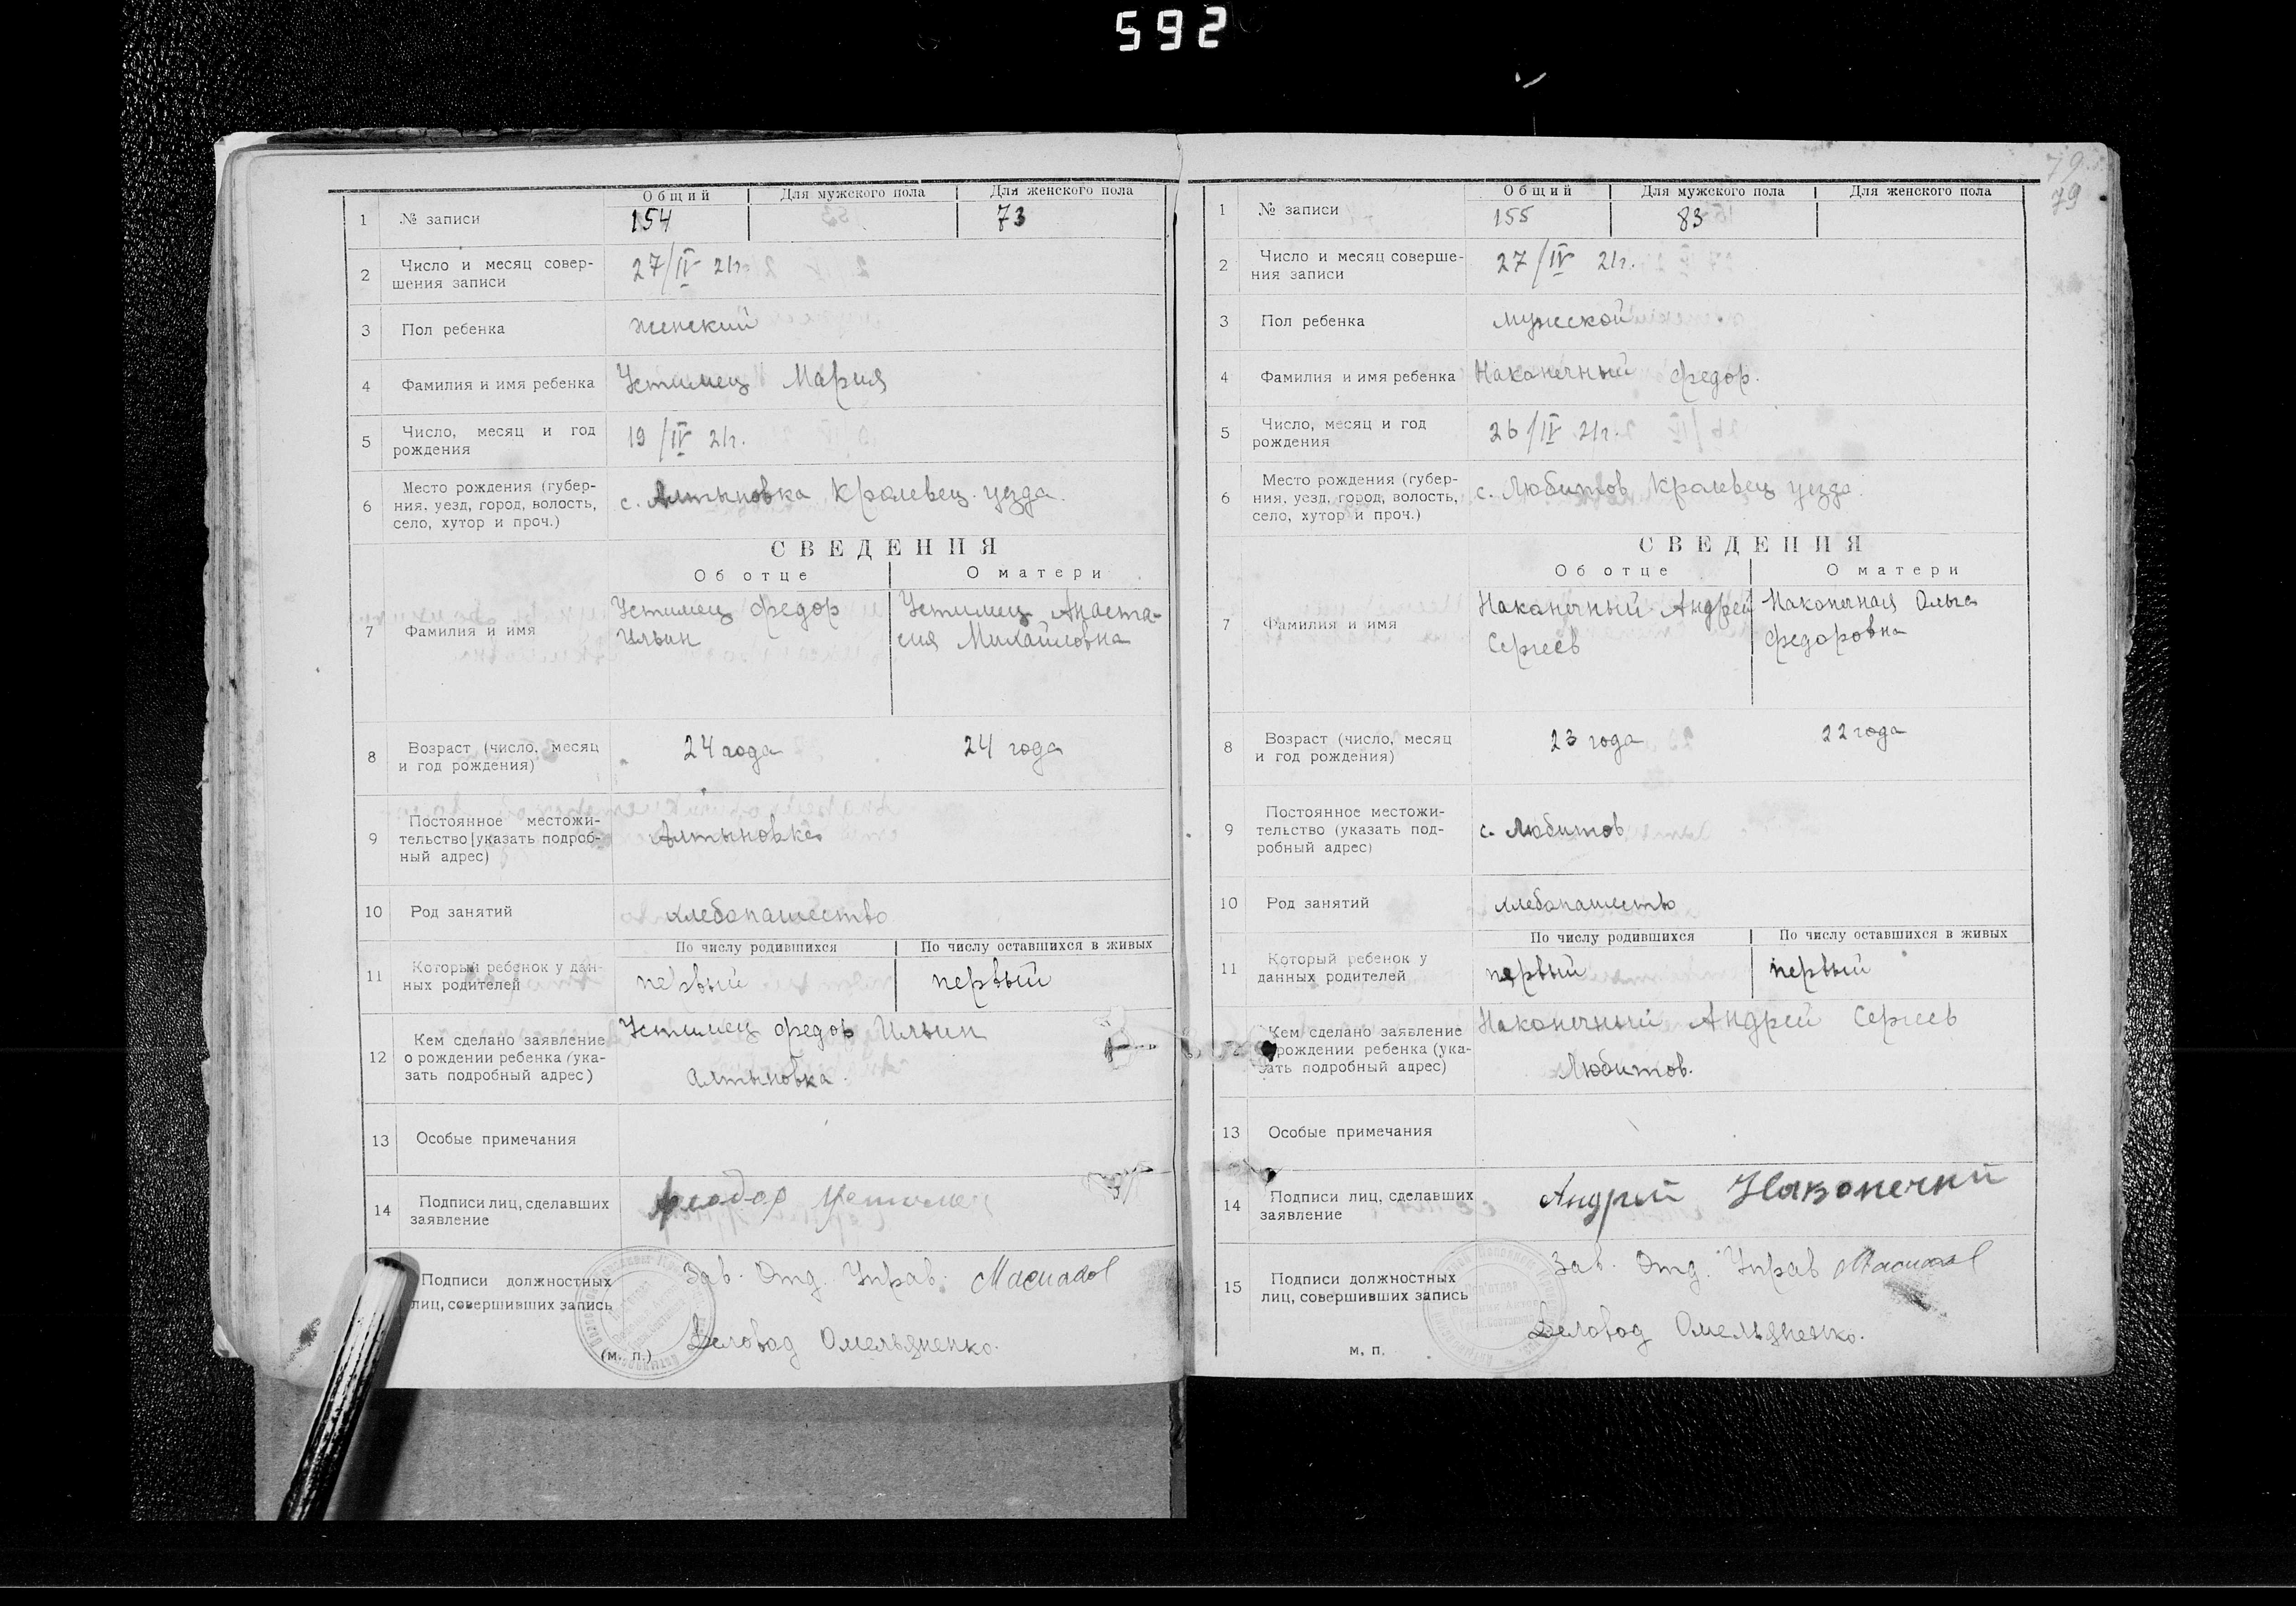 592
79
79
Общий Для мужского пола Для женского пола
1 № записи 154 73
2 Число и месяц совер-
шения записи 27/IV 21г.
3 Пол ребенка женский
4 Фамилия и имя ребенка Устимец Мария
5 Число, месяц и год
рождения 19/IV 21г.
6 Место рождения (губер-
ния, уезд, город, волость,
село, хутор и проч.) с. Алтыновка Кролевец. уезда.
СВЕДЕНИЯ
Об отце О матери
7 Фамилия и имя
Устимец Федор Устимец Анаста-
Ильин сия Михайловна
8 Возраст (число, месяц
и год рождения) 24 года 24 года
9 Постоянное местожи-
тельство (указать подроб-
ный адрес) Алтыновка
10 Род занятий хлебопашество
По числу родившихся По числу оставшихся в живых
11 Который ребенок у дан-
ных родителей первый первый
12 Кем сделано заявление
о рождении ребенка (ука-
зать подробный адрес)
Устимец Федор Ильин
Алтыновка.
13 Особые примечания
14 Подписи лиц, сделавших
заявление Феодор Устимец
Подписи должностных
лиц, совершивших запись
(м. п.)
Зав. Отд. Управ.
Деловод Омельяненко.
Общий Для мужского пола Для женского пола
1 № записи 155 83
2 Число и месяц соверше-
ния записи 27/IV 21г.
3 Пол ребенка мужской
4 Фамилия и имя ребенка Наконечный Федор.
5 Число, месяц и год
рождения 26/IV 21г.
6 Место рождения (губер-
ния, уезд, город, волость,
село, хутор и проч.) с. Любитов Кролевец уезда.
СВЕДЕНИЯ
Об отце О матери
7 Фамилия и имя
Наконечный Андрей Наконечная Ольга
Сергеев Федоровна
8 Возраст (число, месяц
и год рождения) 23 года 22 года
9 Постоянное местожи-
тельство (указать под-
робный адрес) с. Любитов
10 Род занятий хлебопашество
По числу родившихся По числу оставшихся в живых
11 Который ребенок у
данных родителей первый первый
Кем сделано заявление
рождении ребенка (ука-
зать подробный адрес)
Наконечный Андрей Сергеев
Любитов.
13 Особые примечания
14 Подписи лиц, сделавших
заявление Андрий Наконечни
15 Подписи должностных
лиц, совершивших запись
м. п.
Зав. Отд. Управ
Деловод Омельяненко.